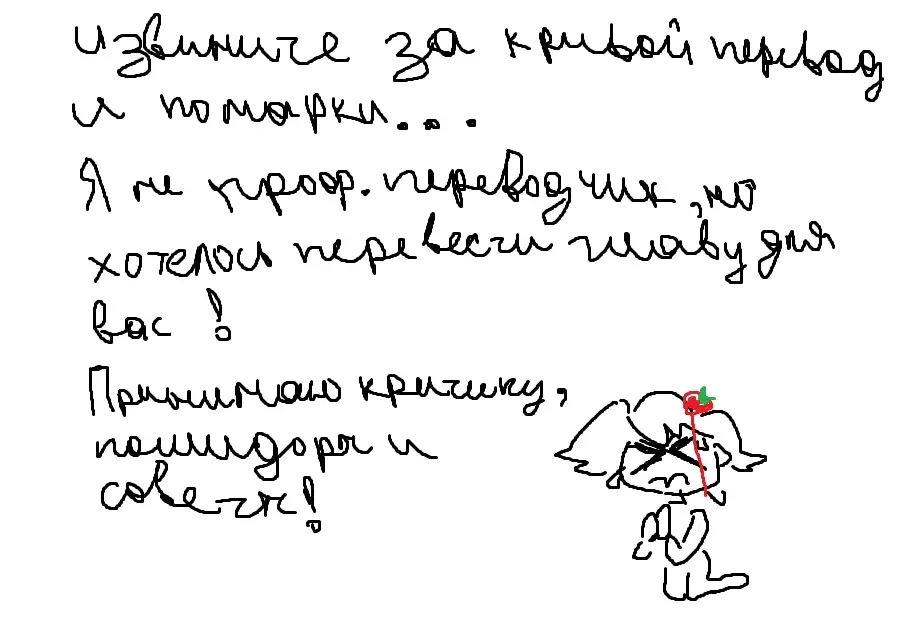 извините за кривой перевод
и помарки...
Я не проф. переводчик, но
хотелось перевести главу для
вас!
Принимаю критику,
помидоры и
советы!